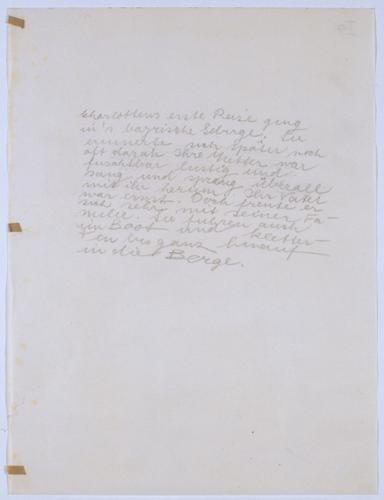 Charlottens erste Reise ging
in's bayrische Gebirge. Sie
erinnerte sich später noch
oft daran. Ihre Mutter war
furchtbar lustig und
sang und sprang überall
mit ihr herum. Ihr Vater
war ernst. Doch freute er
sich sehr mit seiner Fa-
milie. Sie fuhren auch
im Boot und kletter-
ten bis ganz hinauf
in die Berge.